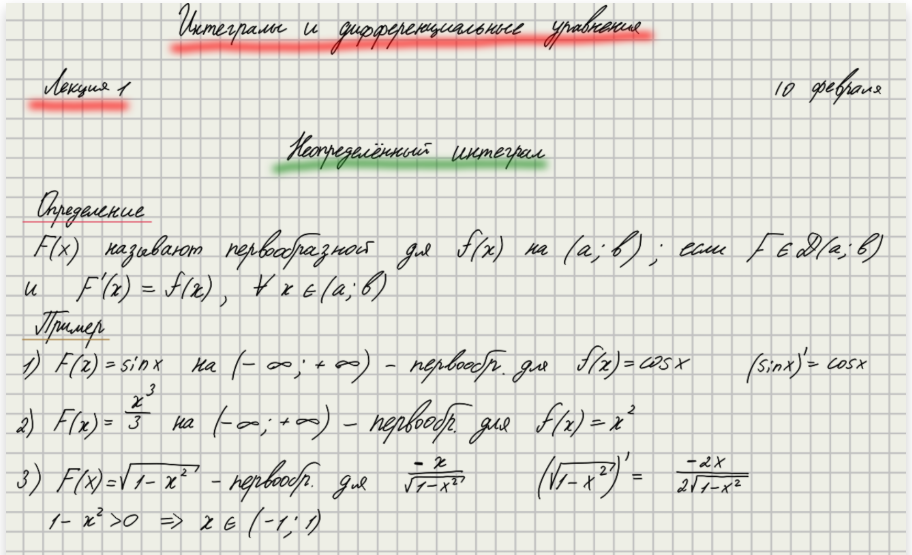 Интегралы и дифференциальные уравнения
Лекция 1 10 февраля
Неопределённый интеграл
Определение
F(x) называют первообразной для f(x) на (a; b) ; если F ∈ D(a; b)
и F'(x) = f(x), ∀ x ∈ (a; b)
Пример
1) F(x) = sinx на (- ∞; + ∞) - первообр. для f(x) = cosx (sinx)' = cosx
2) F(x) = x³/3 на (-∞; +∞) - первообр. для f(x) = x²
3) F(x) = √(1-x²) - первообр. для -x/√(1-x²) (√(1-x²))' = -2x/2√(1-x²)
1-x² > 0 => x ∈ (-1; 1)